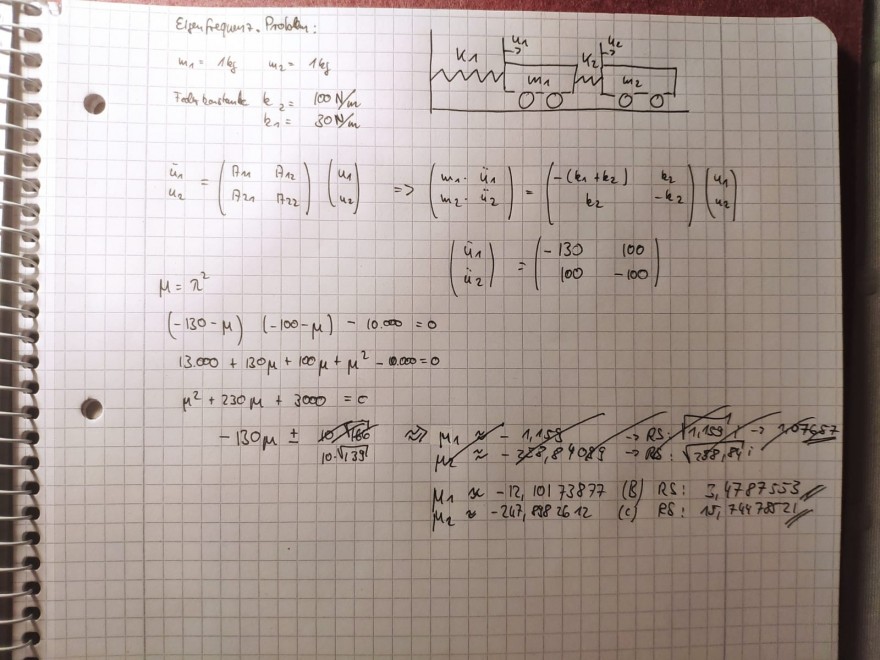 Eigenfrequenz-Problem:
m1 = 1kg m2 = 1kg
Federkonstante k2 = 100 N/m
k1 = 30 N/m
K1 u1 K2 u2
m1 m2
ü1 = (A11 A12) (u1) => (m1 · ü1) = (-(k1+k2) k2) (u1)
u2 (A21 A22) (u2) (m2 · ü2) (k2 -k2) (u2)
(ü1) = (-130 100)
(ü2) (100 -100)
μ = λ²
(-130-μ) (-100-μ) - 10.000 = 0
13.000 + 130μ + 100μ + μ² - 10.000 = 0
μ² + 230μ + 3000 = 0
-130μ ±
10·√139
μ1 ≈ -1,159 → RS: √1,159 i →
μ2 ≈ -258,84089 → RS: √258,84 i
μ1 ≈ -12,10173877 (B) RS: 3,4787553
μ2 ≈ -247,8982612 (C) RS: 15,74478521